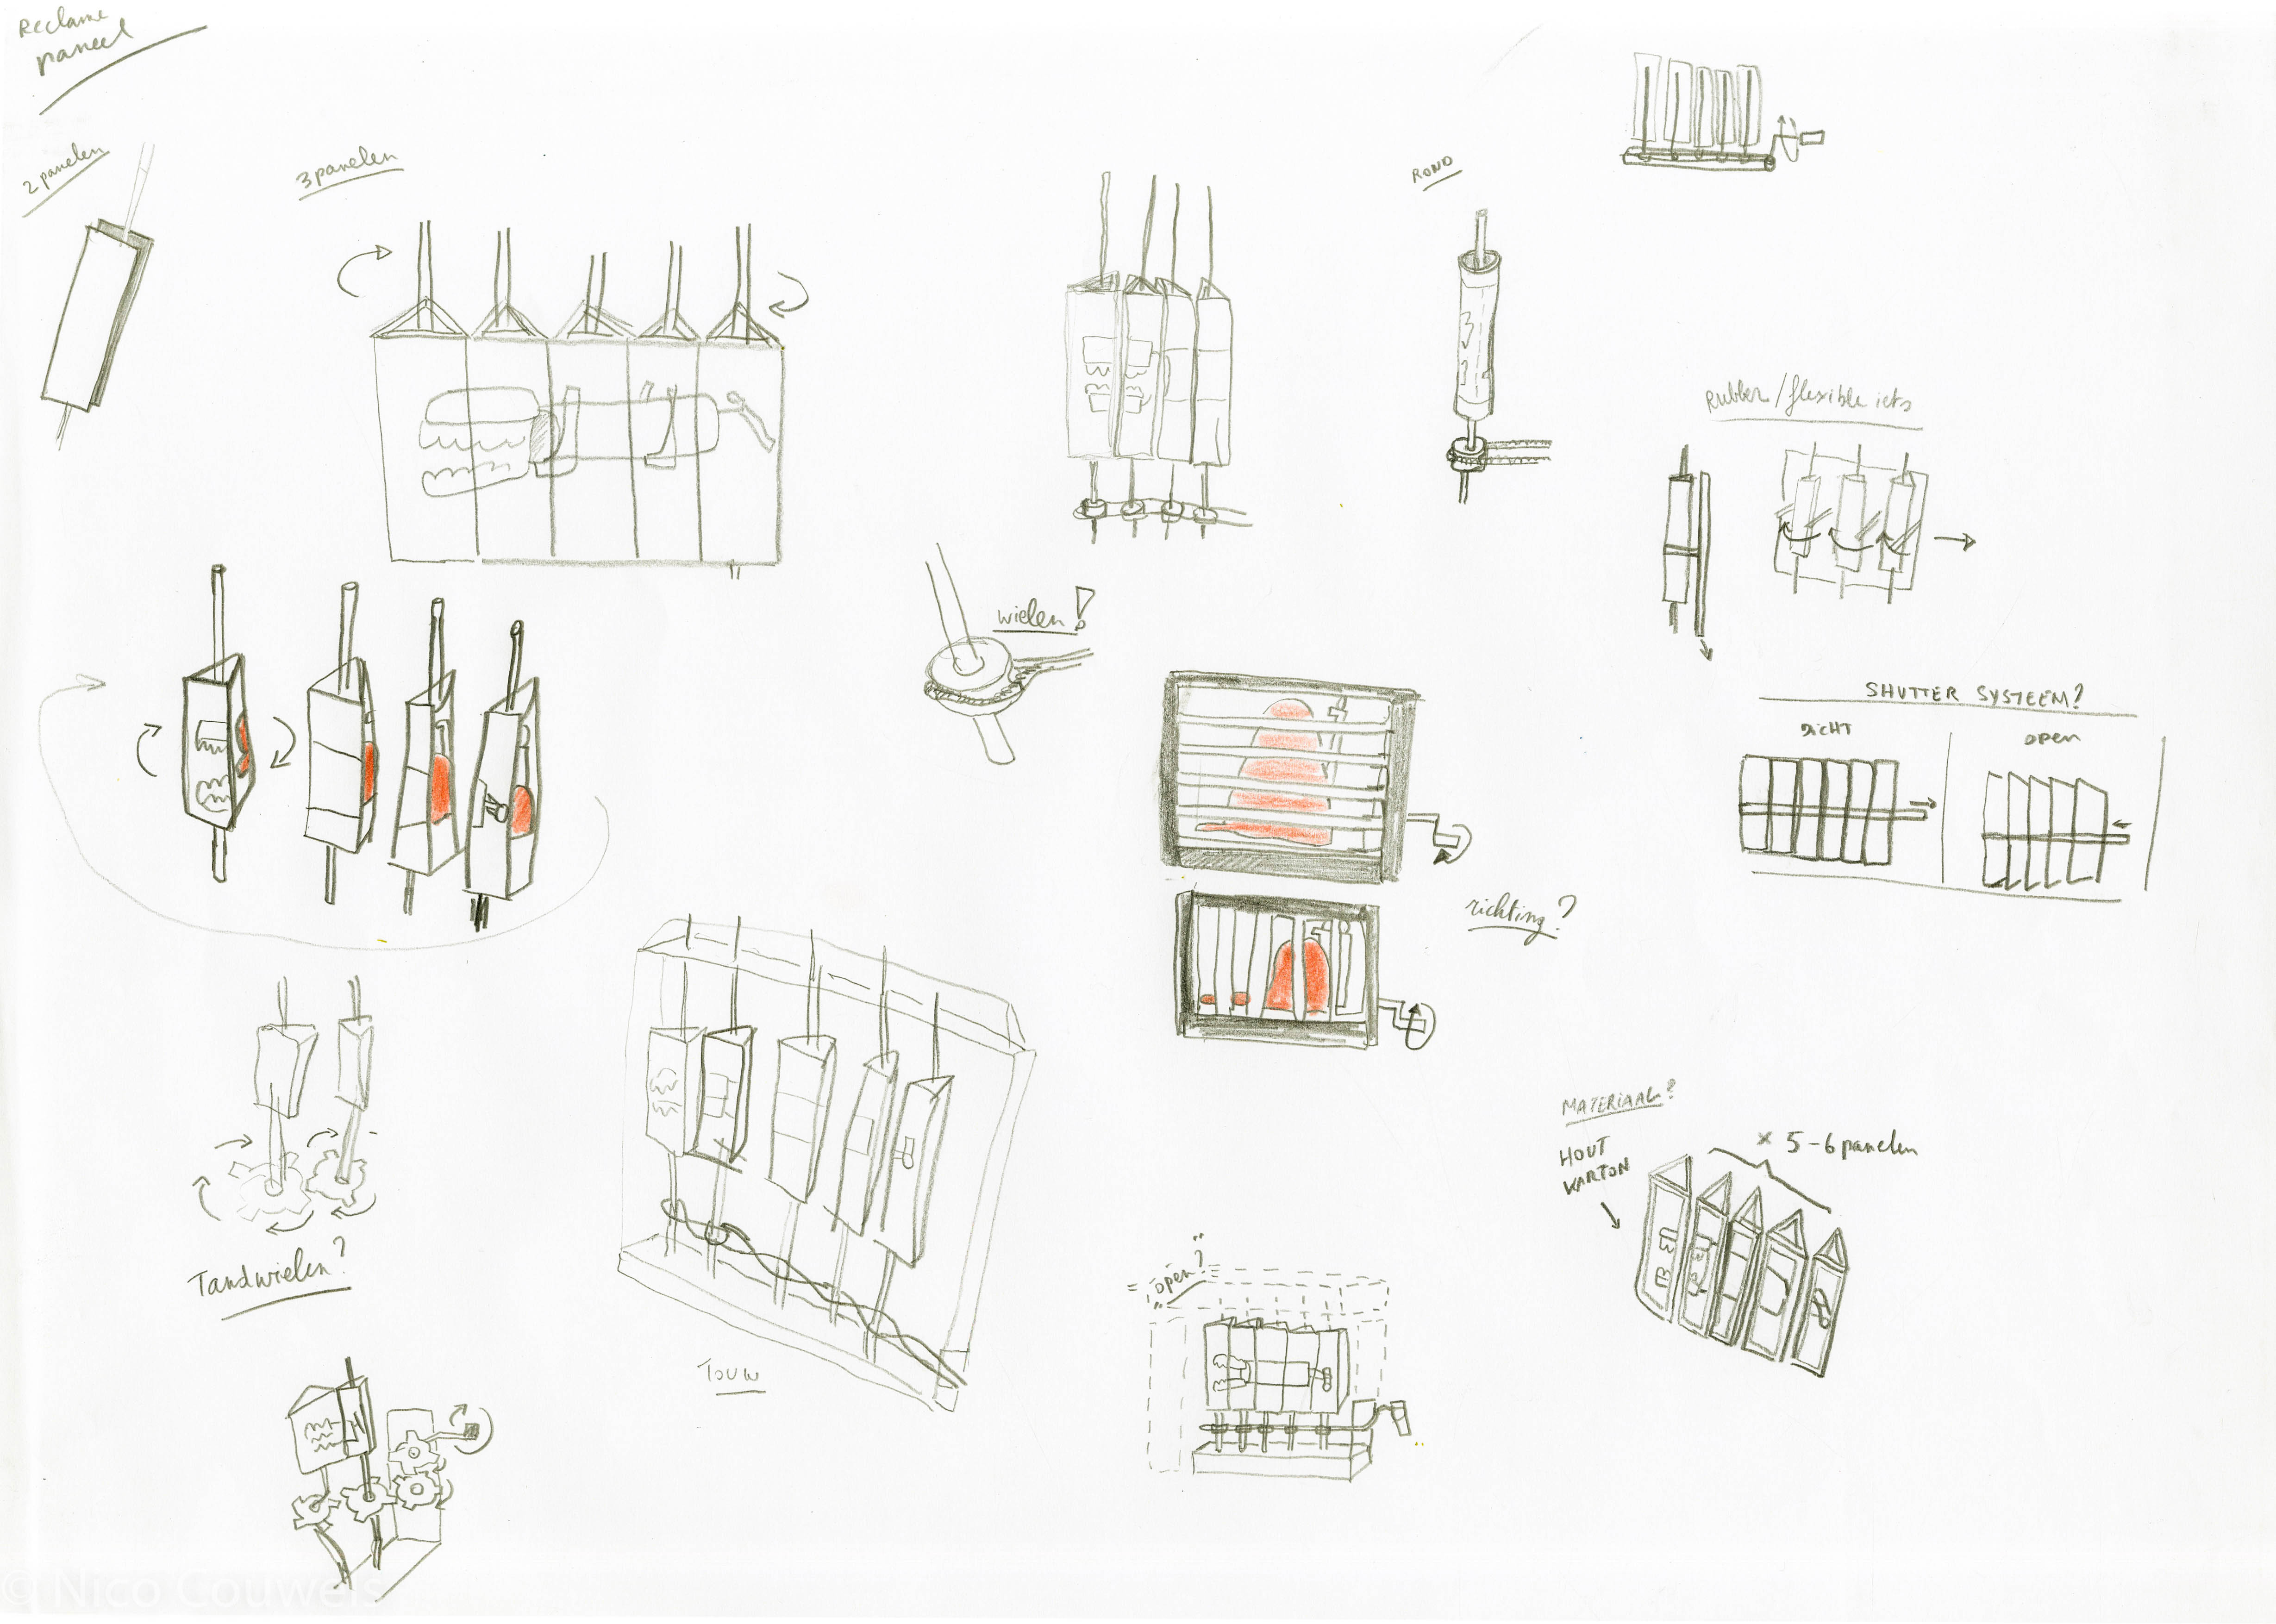 Reclame
paneel
2 panelen
3 panelen
ROND
Rubber/flexible iets
wielen!
SHUTTER SYSTEEM?
DICHT
open
richting?
MATERIAAL?
HOUT
KARTON
x 5-6 panelen
Tandwielen?
Touw
open?
© Nico Couwels